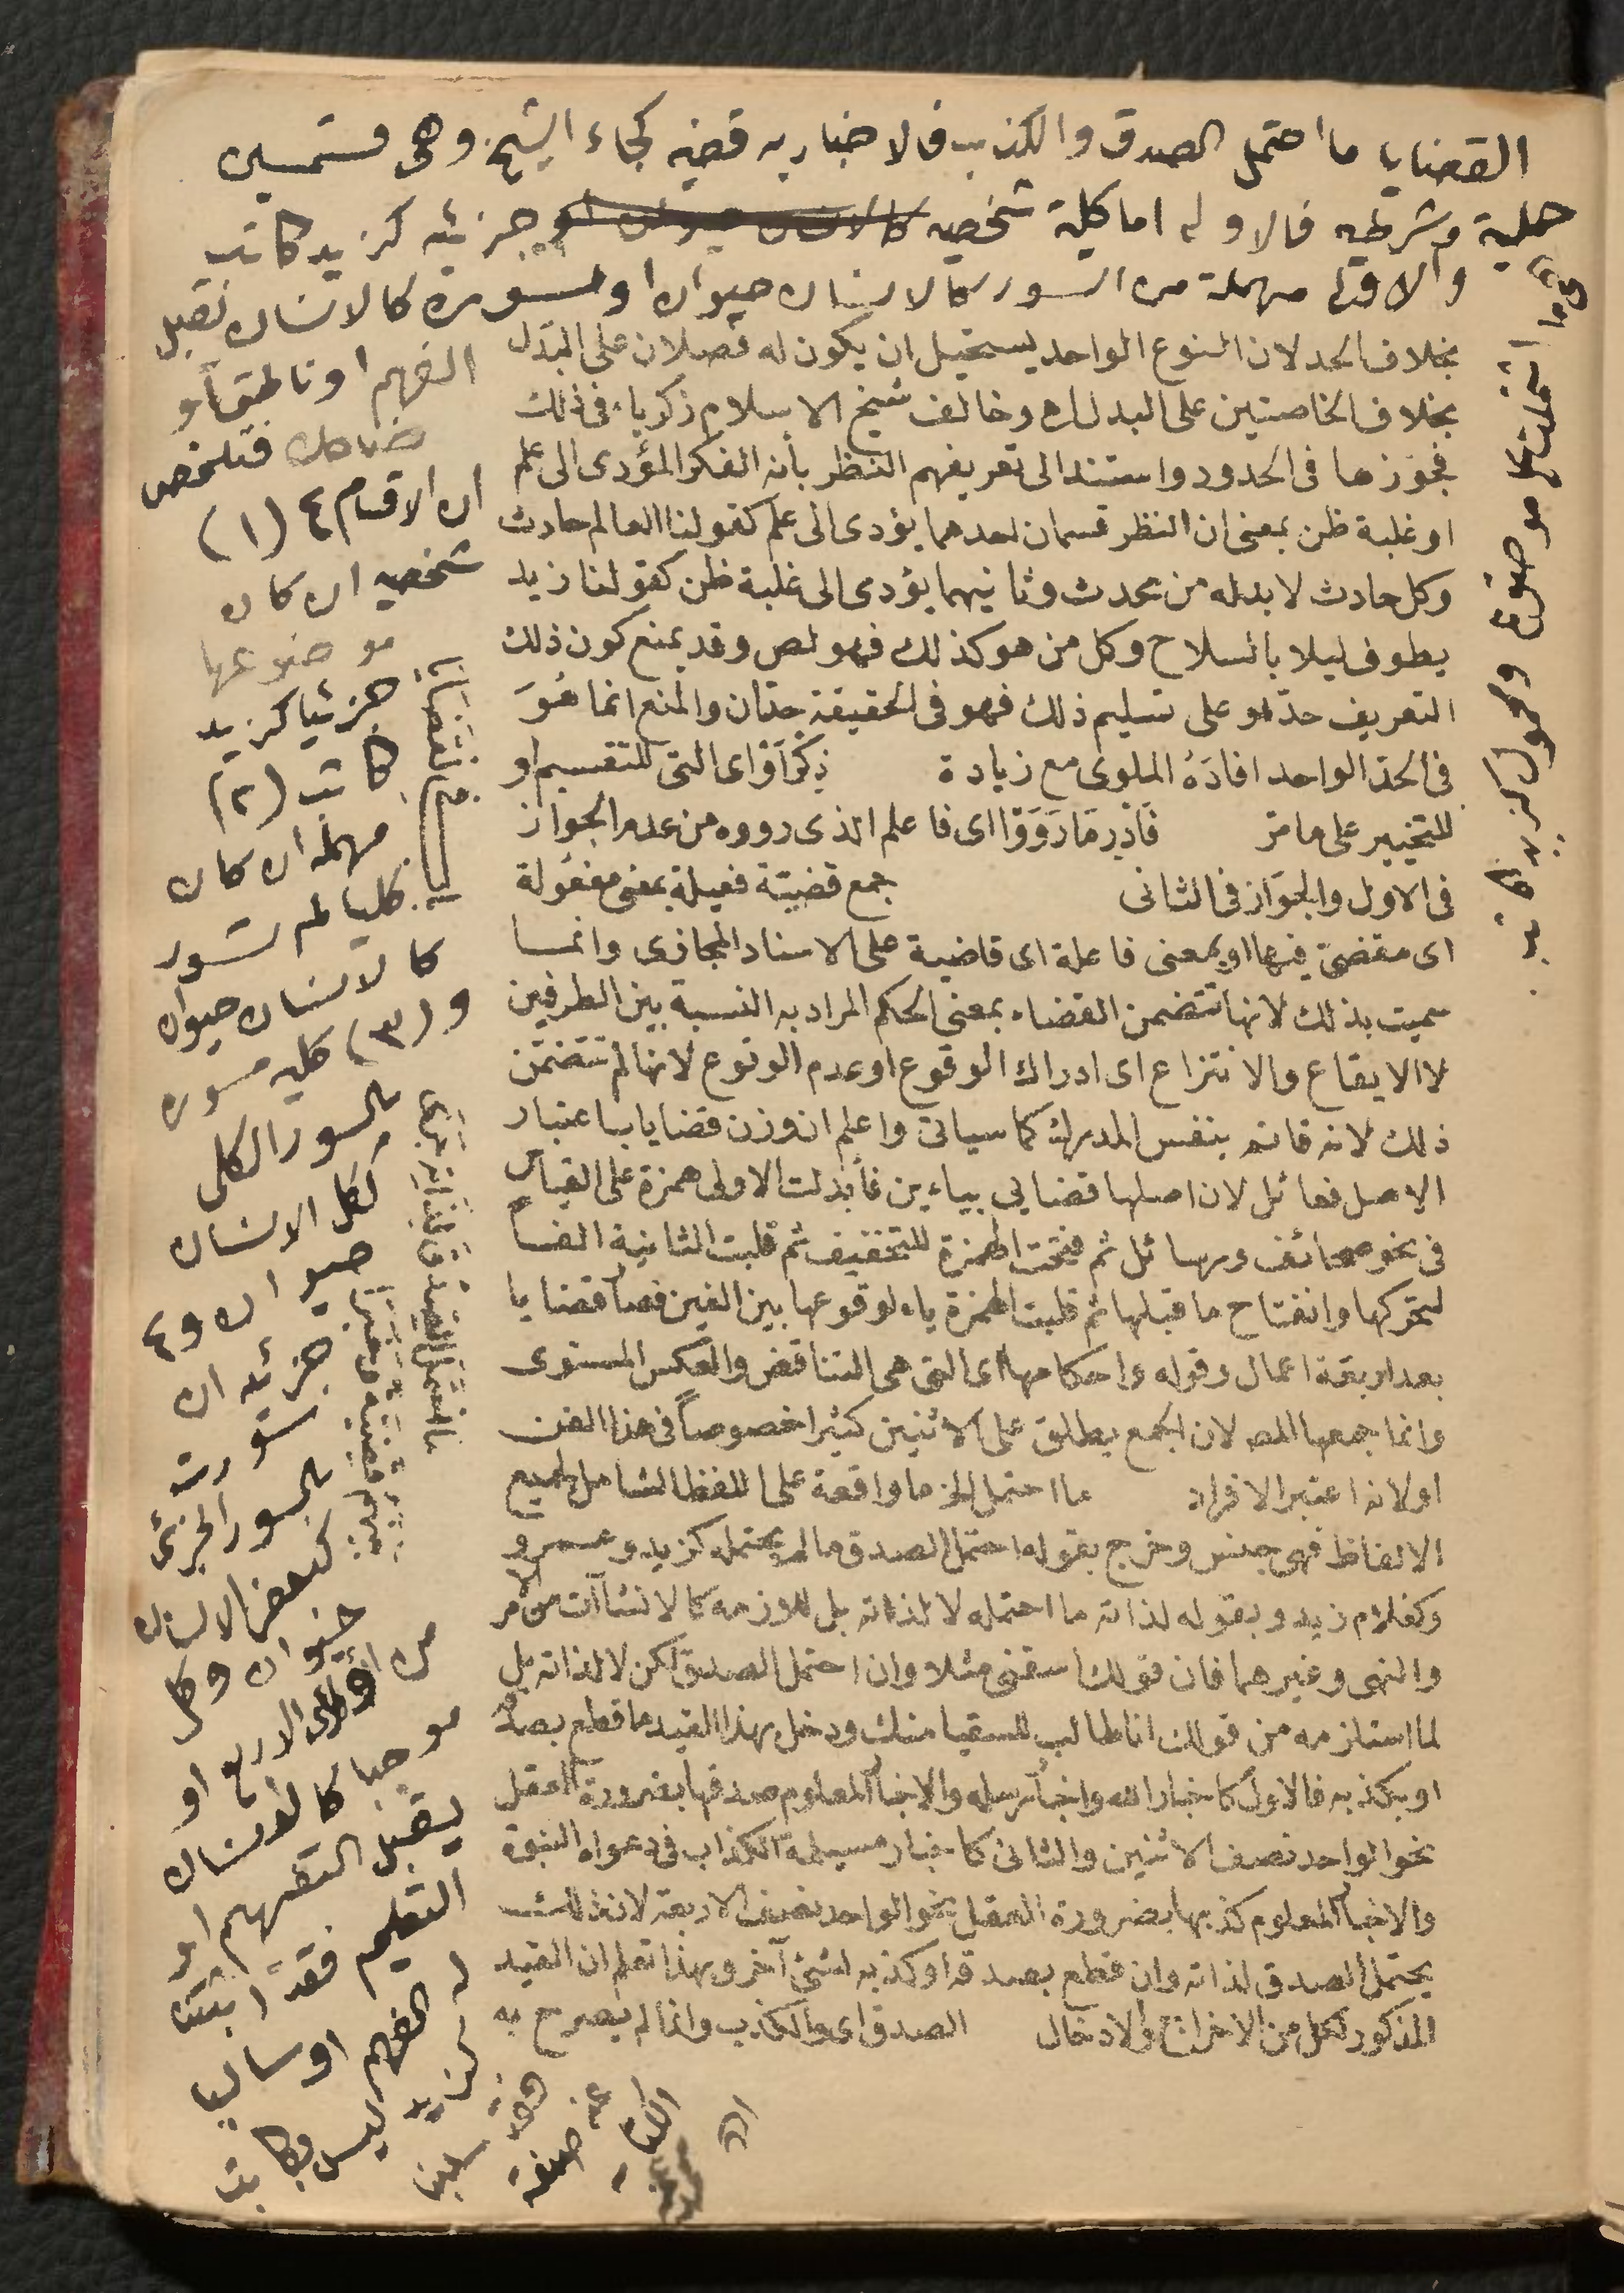 القضايا ما احتمل الصدق والكذب فالاخبار به قضيه كجاء الشيخ وهى قسمين
حملية وشرطيه فالاولى اما كلية شخصيه جزئيه كزيد كاتب
والاولى مهملة من السور كالانسان حيوان او مسوره كالانسان تقبل
الفهم او ناطق أو
ضاحك فتلخص
ان الاقسام ٤ (١)
شخصيه ان كان
موضوعها
جزئيا كزيد
كاتب (٢)
مهمله ان كان
كليا لم تسور
كالانسان حيوان
و (٣) كليه مسوره
بالسور الكلى
ككل الانسان
حيوان و ٤
جزئيه ان
سورت
بالسور الجزئى
كبعض الانسان
حيوان وكل
من الاربع او
موجبا كالانسان
يقبل التفهم او
التعليم فقد اثبتنا
له الفهم او سالبا
كزيد ليس بكاتب
فقد سلبنا
عنه صفة
الكتابه
اه
بخلاف الحد لان النوع الواحد يستحيل ان يكون له فصلان على البدل
بخلاف الخاصتين على البدل اه وخالف شيخ الاسلام زكرياء فى ذلك
فجوزها فى الحدود واستند الى تعريفهم النظر بأنه الفكر المؤدى الى علم
او غلبة ظن بمعنى ان النظر قسمان احدهما يؤدى الى علم كقولنا العالم حادث
وكل حادث لابد له من محدث وثانيهما يؤدى الى غلبة ظن كقولنا زيد
يطوف ليلا بالسلاح وكل من هو كذلك فهو لص وقد يمنع كون ذلك
التعريف حدّا و على تسليم ذلك فهو فى الحقيقة حدّان والمنع انما هُوَ
فى الحدّ الواحد افادَهُ الملوى مع زيادة ذِكْرَ أَوْ اى التى للتقسيم او
للتخيير على ما مرّ فَادْرِ مَا رَوَوْا اى فاعلم الذى رووه من عدم الجواز
فى الاول والجوَاز فى الثانى جمع قضيّة فعيلة بمعنى مفعُولة
اى مقضىّ فيها او بمعنى فاعلة اى قاضية على الاسناد المجازى وانما
سميت بذلك لانها تتضمن القضاء بمعنى الحكم المراد به النسبة بين الطرفين
لا الايقاع والانتزاع اى ادراك الوقوع او عدم الوقوع لانها لم تتضمّن
ذلك لانه قائم بنفس المدرك كما سياتى واعلم ان وزن قضايا باعتبار
الاصل فعائل لان اصلها قضايى بياءين فأبدلت الاولى همزة على القياس
فى نحو صحائف ورسائل ثم فتحت الهمزة للتخفيف ثم قلبت الثانية الفاً
لتحركها وانفتاح ما قبلها ثم قلبت الهمزة ياء لوقوعها بين الفين فصار قضايا
بعد اربعة اعمال وقوله واحكامها اى التى هى التناقض والعكس المستوى
وانما جمعها المص لان الجمع يطلق على الاثنين كثيرا خصوصاً فى هذا الفن
او لانه اعتبر الافراد ما احتمل الخ ما واقعة على اللفظ الشامل لجميع
الالفاظ فهى جنس وخرج بقوله احتمل الصدق ما لم يحتمله كزيد وعمرو
وكغلام زيد وبقوله لذاته ما احتمله لا لذاته بل للوازمه كالانشاآت من الامر
والنهى وغيرهما فان قولك اسقنى مثلا وان احتمل الصدق لكن لا لذاته بل
لما استلزمه من قولك انا طالب للسقيا منك ودخل بهذا القيد ما قطع بصدقه
او بكذبه فالاول كاخبار الله واخبار رسله والاخبار المعلوم صدقها بضرورة العقل
نحو الواحد نصف الاثنين والثانى كاخبار مسيلمة الكذاب فى دعواه النبوّة
والاخبار المعلوم كذبها بضرورة العقل نحو الواحد نصف الاربعة لان ذلك
يحتمل الصدق لذاته وان قطع بصدقه او كذبه لشئ آخر وبهذا تعلم ان القيد
المذكور لكل من الاخراج والادخال الصدق اى والكذب وانما لم يصرح به
اشتملت على موضوع ومحمول كزيد كاتب